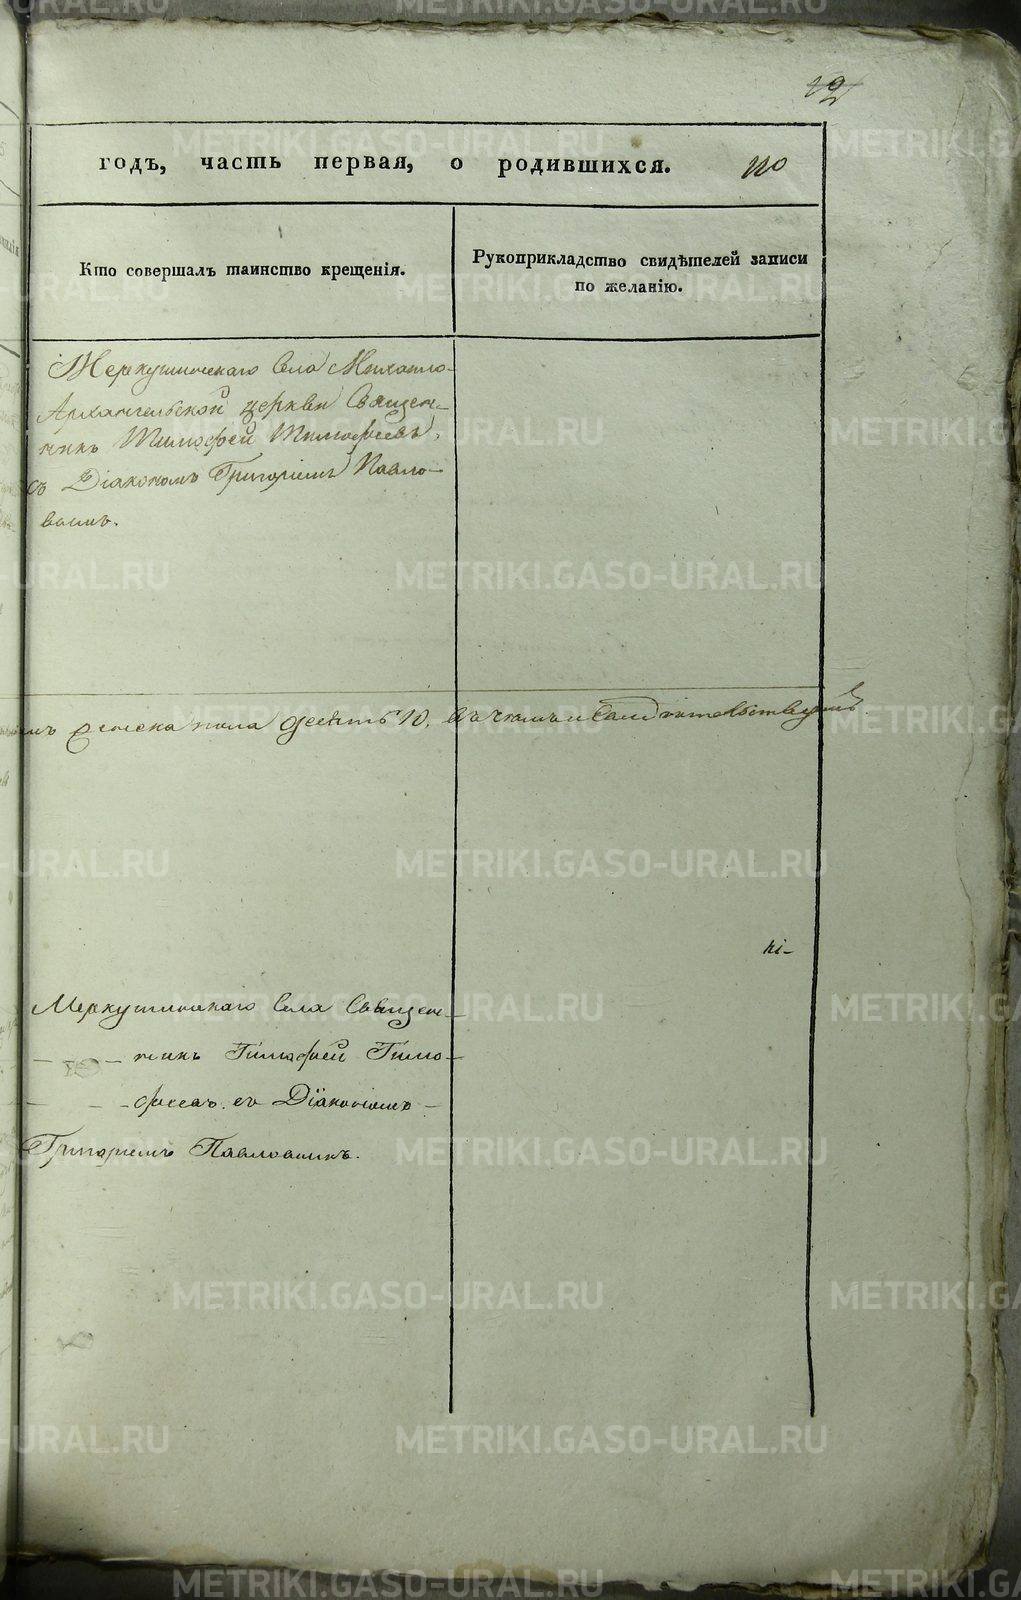 12
годъ, часть первая, о родившихся. 110
Кто совершалъ таинство крещенія.
Рукоприкладство свидѣтелей записи
по желанію.
Меркушинскаго села Михаило-
Архангельской церкви Священ-
никъ Тимофей Тимофеевъ,
съ Діакономъ Григоріемъ Павло-
вымъ.
женска пола десять 10. въ чемъ и свидѣтельствуемъ
кі-
Меркушинскаго села Священ-
никъ Тимофей Тимо-
феевъ. съ Діакономъ
Григоріемъ Павловымъ.
METRIKI.GASO-URAL.RU